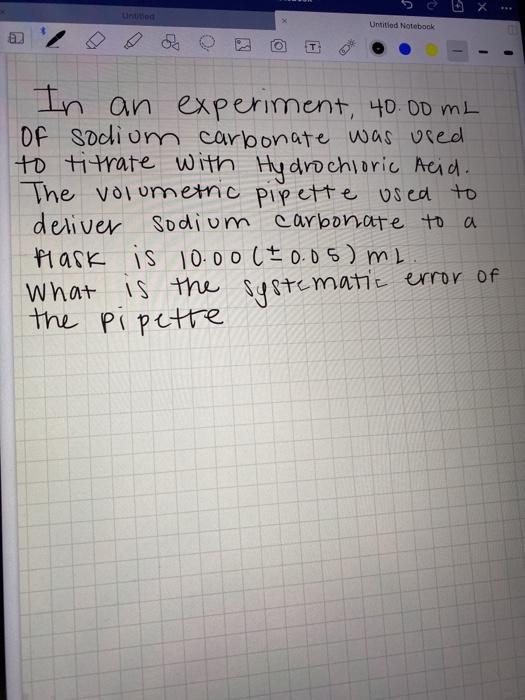 Untitled
Untitled Notebook
T
In an experiment, 40.00 mL
of sodium carbonate was used
to titrate with Hydrochloric Acid.
The volumetric pipette used to
deliver sodium carbonate to a
flask is 10.00 (± 0.05) mL.
What is the systematic error of
the pipette